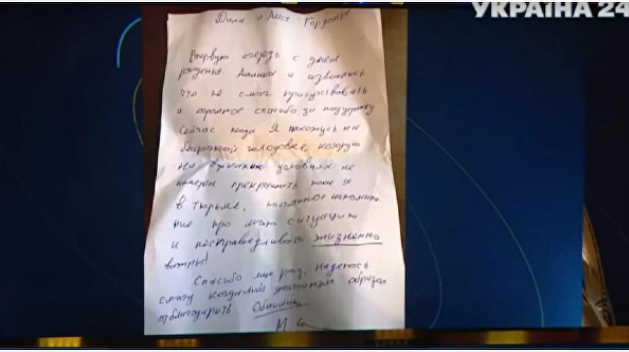 УКРАЇНА 24
Дима и Алеся Гордон
В первую очередь с днем
рождения Алисии и извиняюсь
что не смог присутствовать
и огромное спасибо за поддержку
сейчас когда я нахожусь на
голодовке, которую
ни в каких условиях не
намерен прекращать пока я
в тюрьме, постоянное напомина
ние про мою ситуацию
и несправедливость жизненно
важны!
Спасибо еще раз, надеюсь
смогу когда-либо достойным образом
отблагодарить Обнимаю